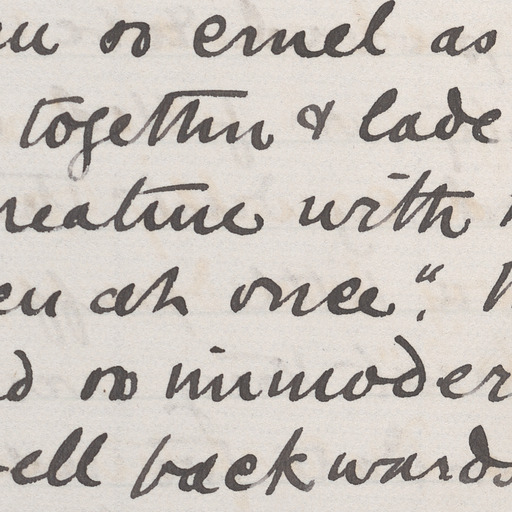 so cruel as
together & lade
creature with
at once".
so immoder
ell backwards